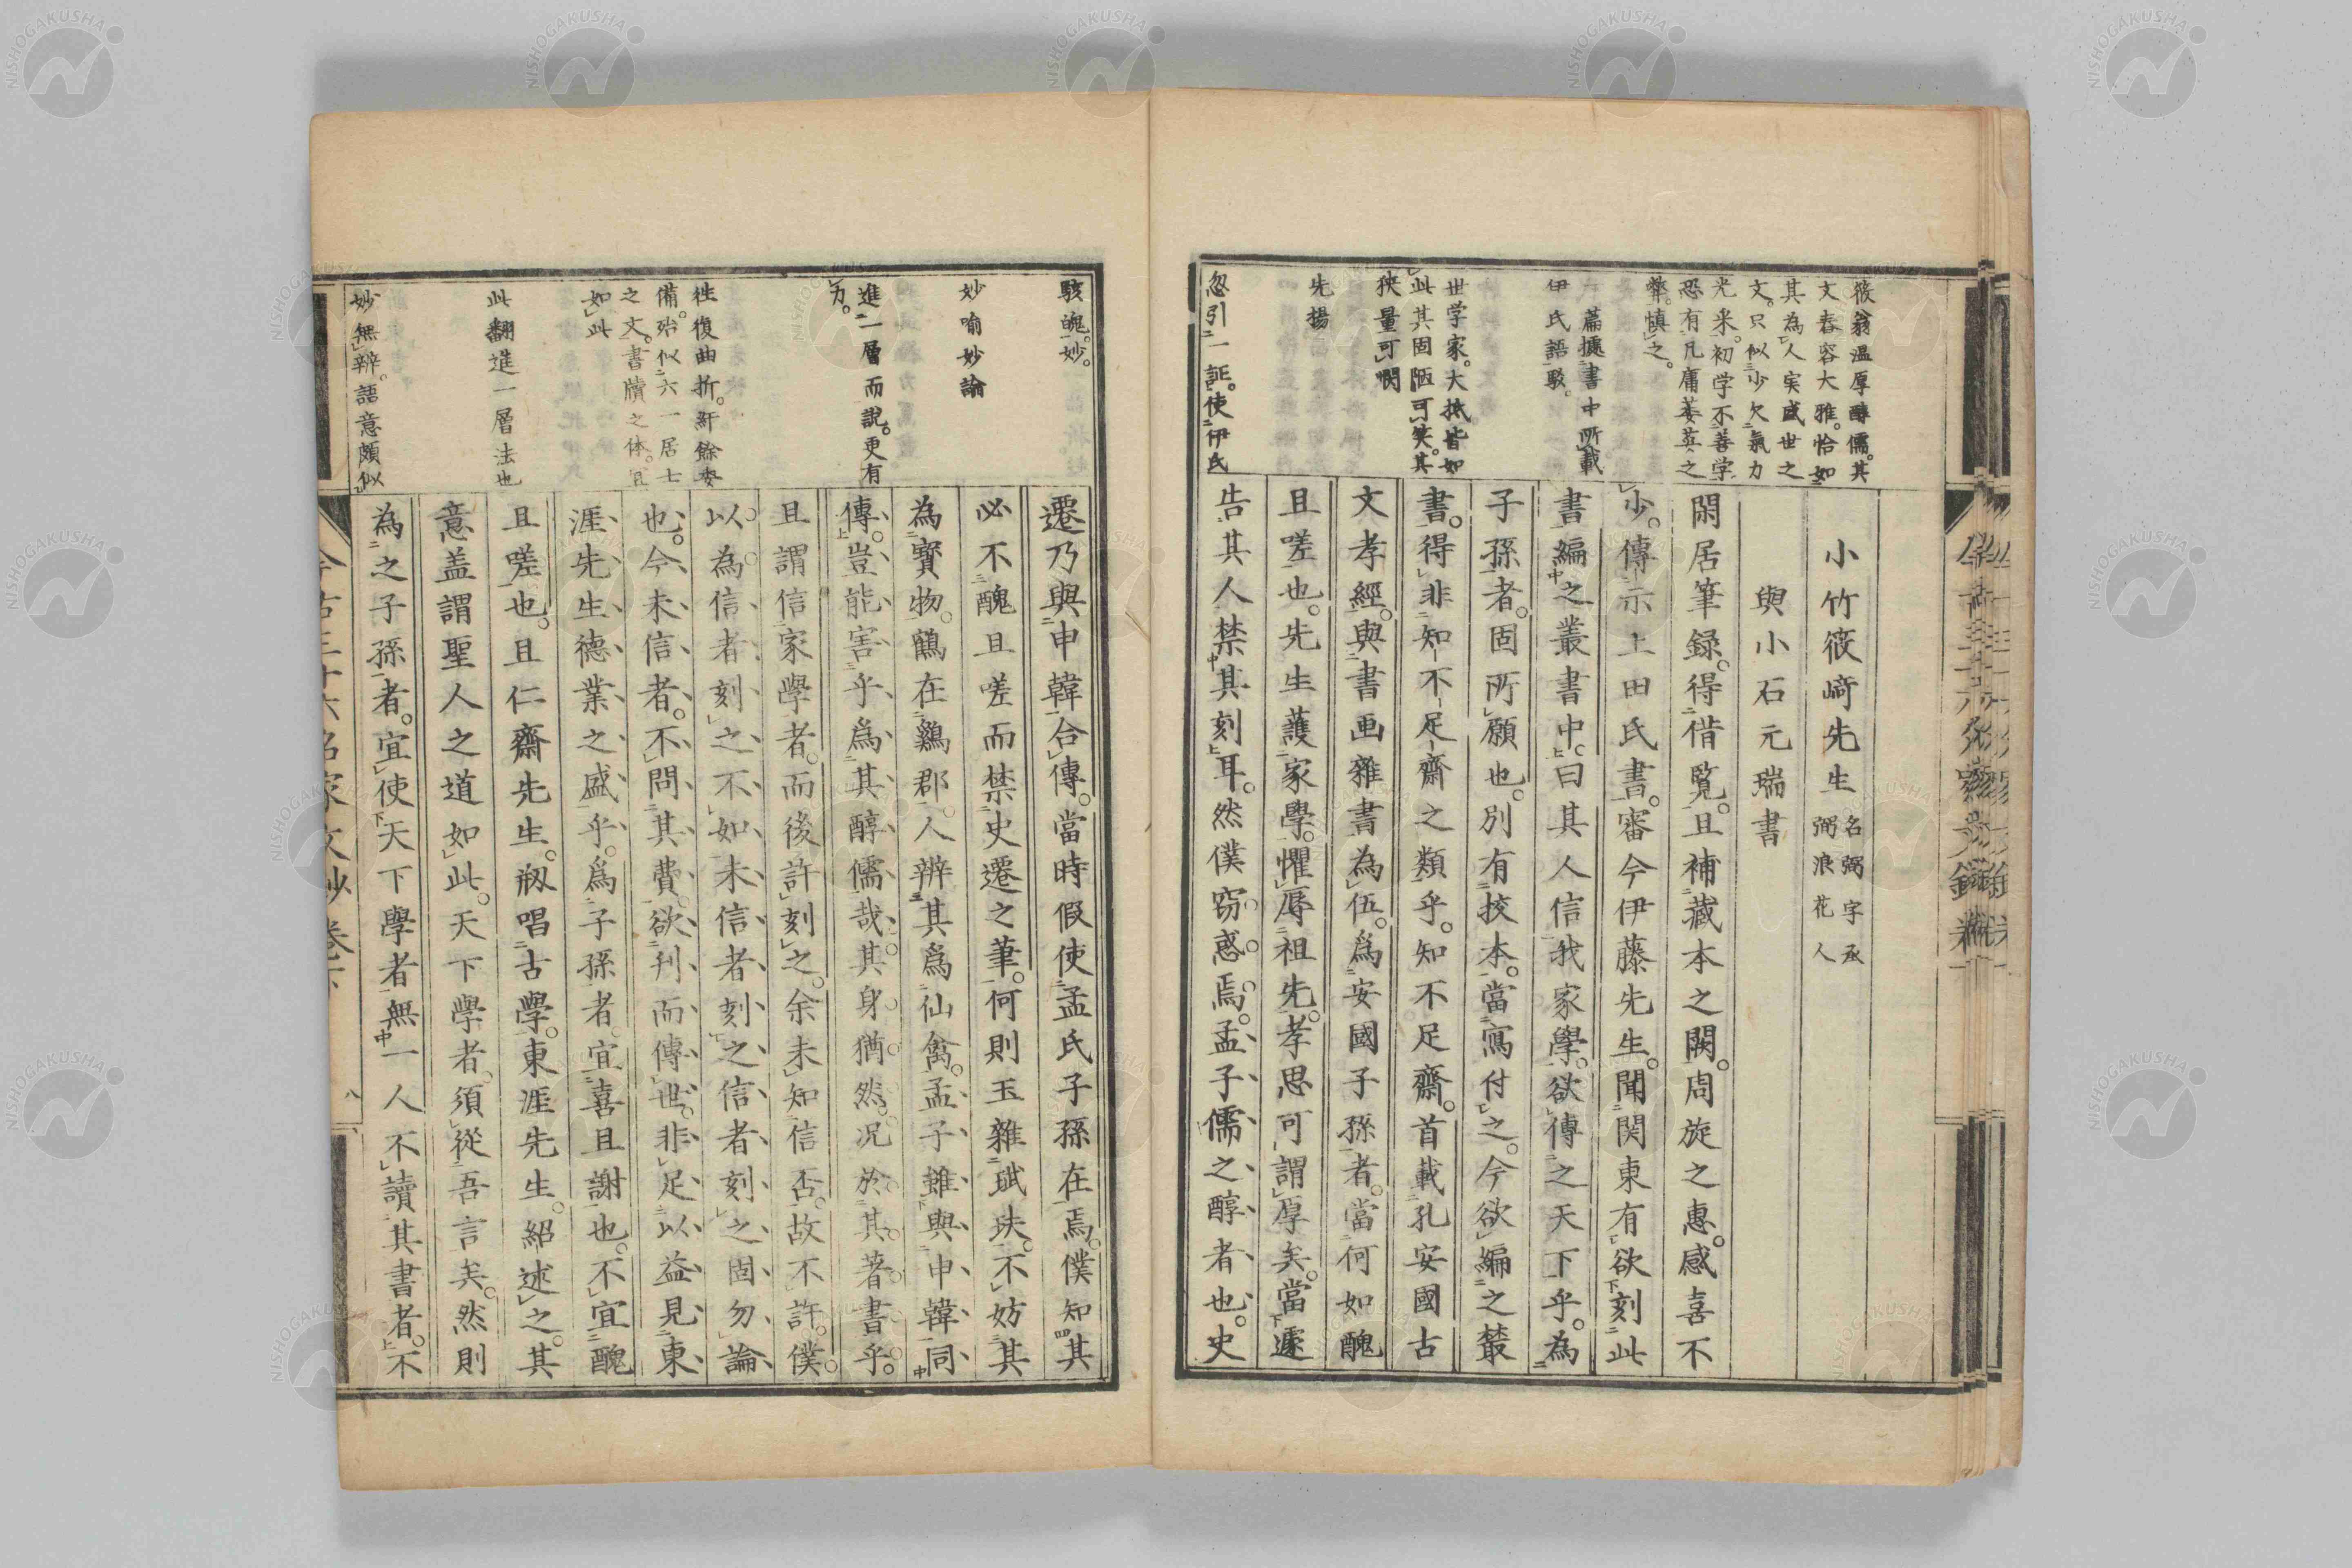 筱翁溫厚醇儒。其
文春容大雅。恰如
其為人実盛世之
文。只似少欠氣力
光采。初学不善学
恐有凡庸萎苶之
弊。慎之。
一篇據書中所載
伊氏語駁。
世学家。大抵皆如
此其固陋可笑。其
狹量可憫
先揚
忽引一証。使伊氏
小竹筱﨑先生 名弼字承弼浪花人
與小石元瑞書
閑居筆録。得借覧。且補藏本之闕。周旋之惠。感喜不
少。傳示上田氏書。審今伊藤先生。聞関東有欲刻此
書編之叢書中。曰其人信我家學。欲傳之天下乎。為
子孫者。固所願也。別有挍本。當寫付之。今欲編之叢
書。得非知不足齋之類乎。知不足齋。首載孔安國古
文孝經。與書画雜書為伍。爲安國子孫者。當何如醜
且嗟也。先生護家學。懼辱祖先。孝思可謂厚矣。當遽
告其人禁其刻耳。然僕窃惑焉。孟子儒之醇者也。史
駭魄。妙。
妙喻妙論
進一層而説。更有
力。
徃復曲折。紆餘委
備。殆似六一居士
之文。書牘之体。宜
如此
此翻進一層法也
妙無辨。語意頗似
遷乃與申韓合傳。當時假使孟氏子孫在焉。僕知其
必不醜且嗟而禁史遷之筆。何則玉雜珷玞。不妨其
為寳物。鶴在鷄郡。人辨其爲仙禽。孟子雖與申韓同
傳。豈能害乎爲其醇儒哉。其身猶然。况於其著書乎。
且謂信家學者。而後許刻之。余未知信否。故不許。僕
以為信者刻之不如未信者刻之信者刻之固勿論
也。今未信者。不問其費。欲刋而傳世。非足以益見東
涯先生德業之盛乎。爲子孫者。宜喜且謝也。不宜醜
且嗟也。且仁齋先生。剏唱古學。東涯先生。紹述之。其
意盖謂聖人之道如此。天下學者。須從吾言矣。然則
為之子孫者。宜使天下學者無一人不讀其書者。不
今古三十六名家文抄 卷六
八